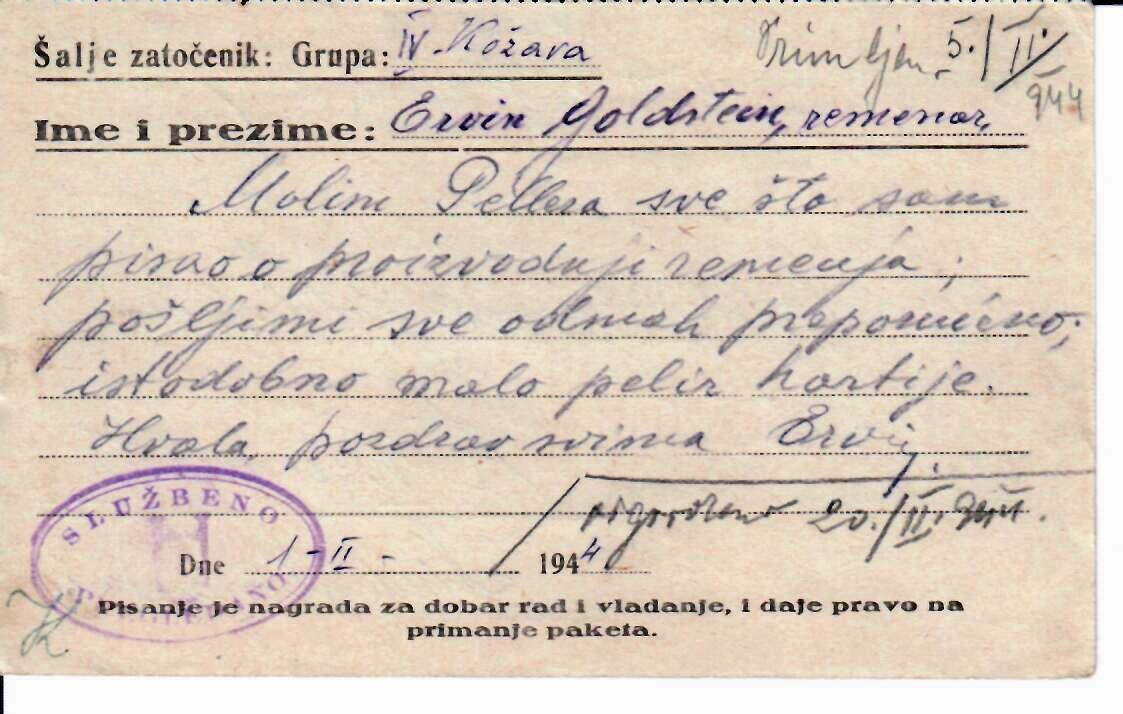 Šalje zatočenik: Grupa: IV Kožara
Primljen. 5./II. 944
Ime i prezime: Ervin Goldstein, remenar,
Molim Pellera sve što sam
pisao o proizvodnji remenja,
pošlji mi sve odmah preporučeno;
istodobno malo pelir hartije.
Hvala, pozdrav svima Ervin.
20./II. 944.
SLUŽBENO
Dne 1-II- 1944
Pisanje je nagrada za dobar rad i vladanje, i daje pravo na
primanje paketa.